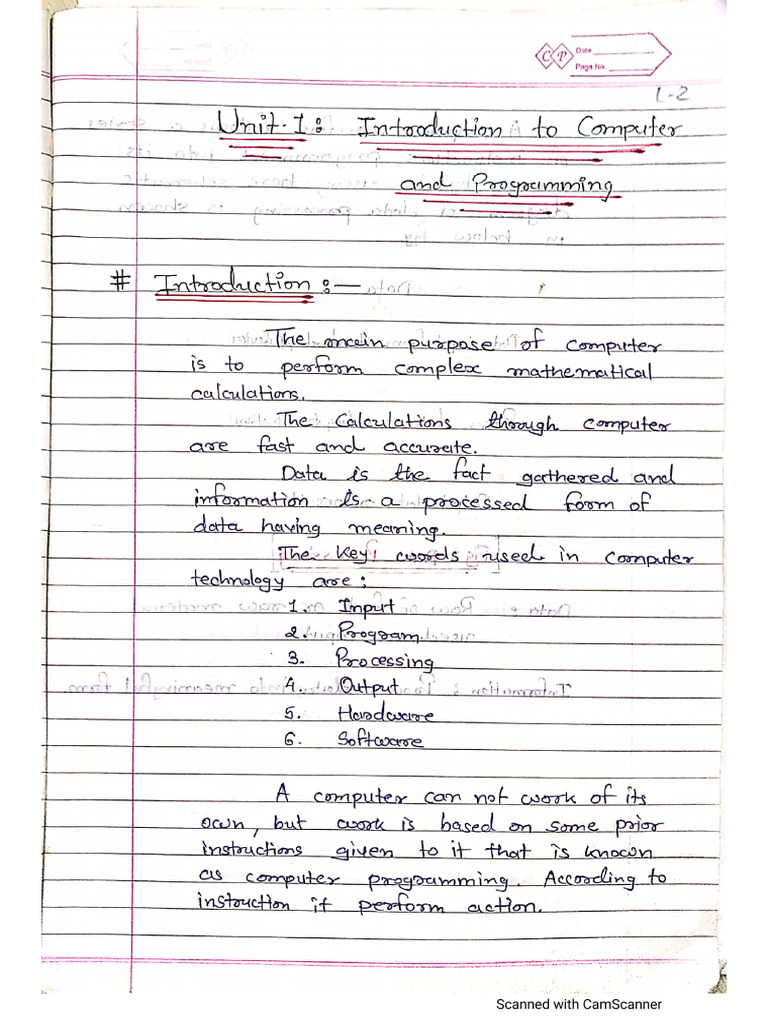 C P
Date
Page No.
L-2
Unit-1: Introduction to Computer
and Programming
# Introduction :—
The main purpose of computer
is to perform complex mathematical
calculations.
The Calculations through computer
are fast and accurate.
Data is the fact gathered and
information is a processed form of
data having meaning.
The key words used in computer
technology are:
1. Input
2. Program.
3. Processing
4. Output
5. Hardware
6. Software
A computer can not work of its
own, but work is based on some prior
instructions given to it that is known
as computer programming. According to
instruction it perform action.
Scanned with CamScanner